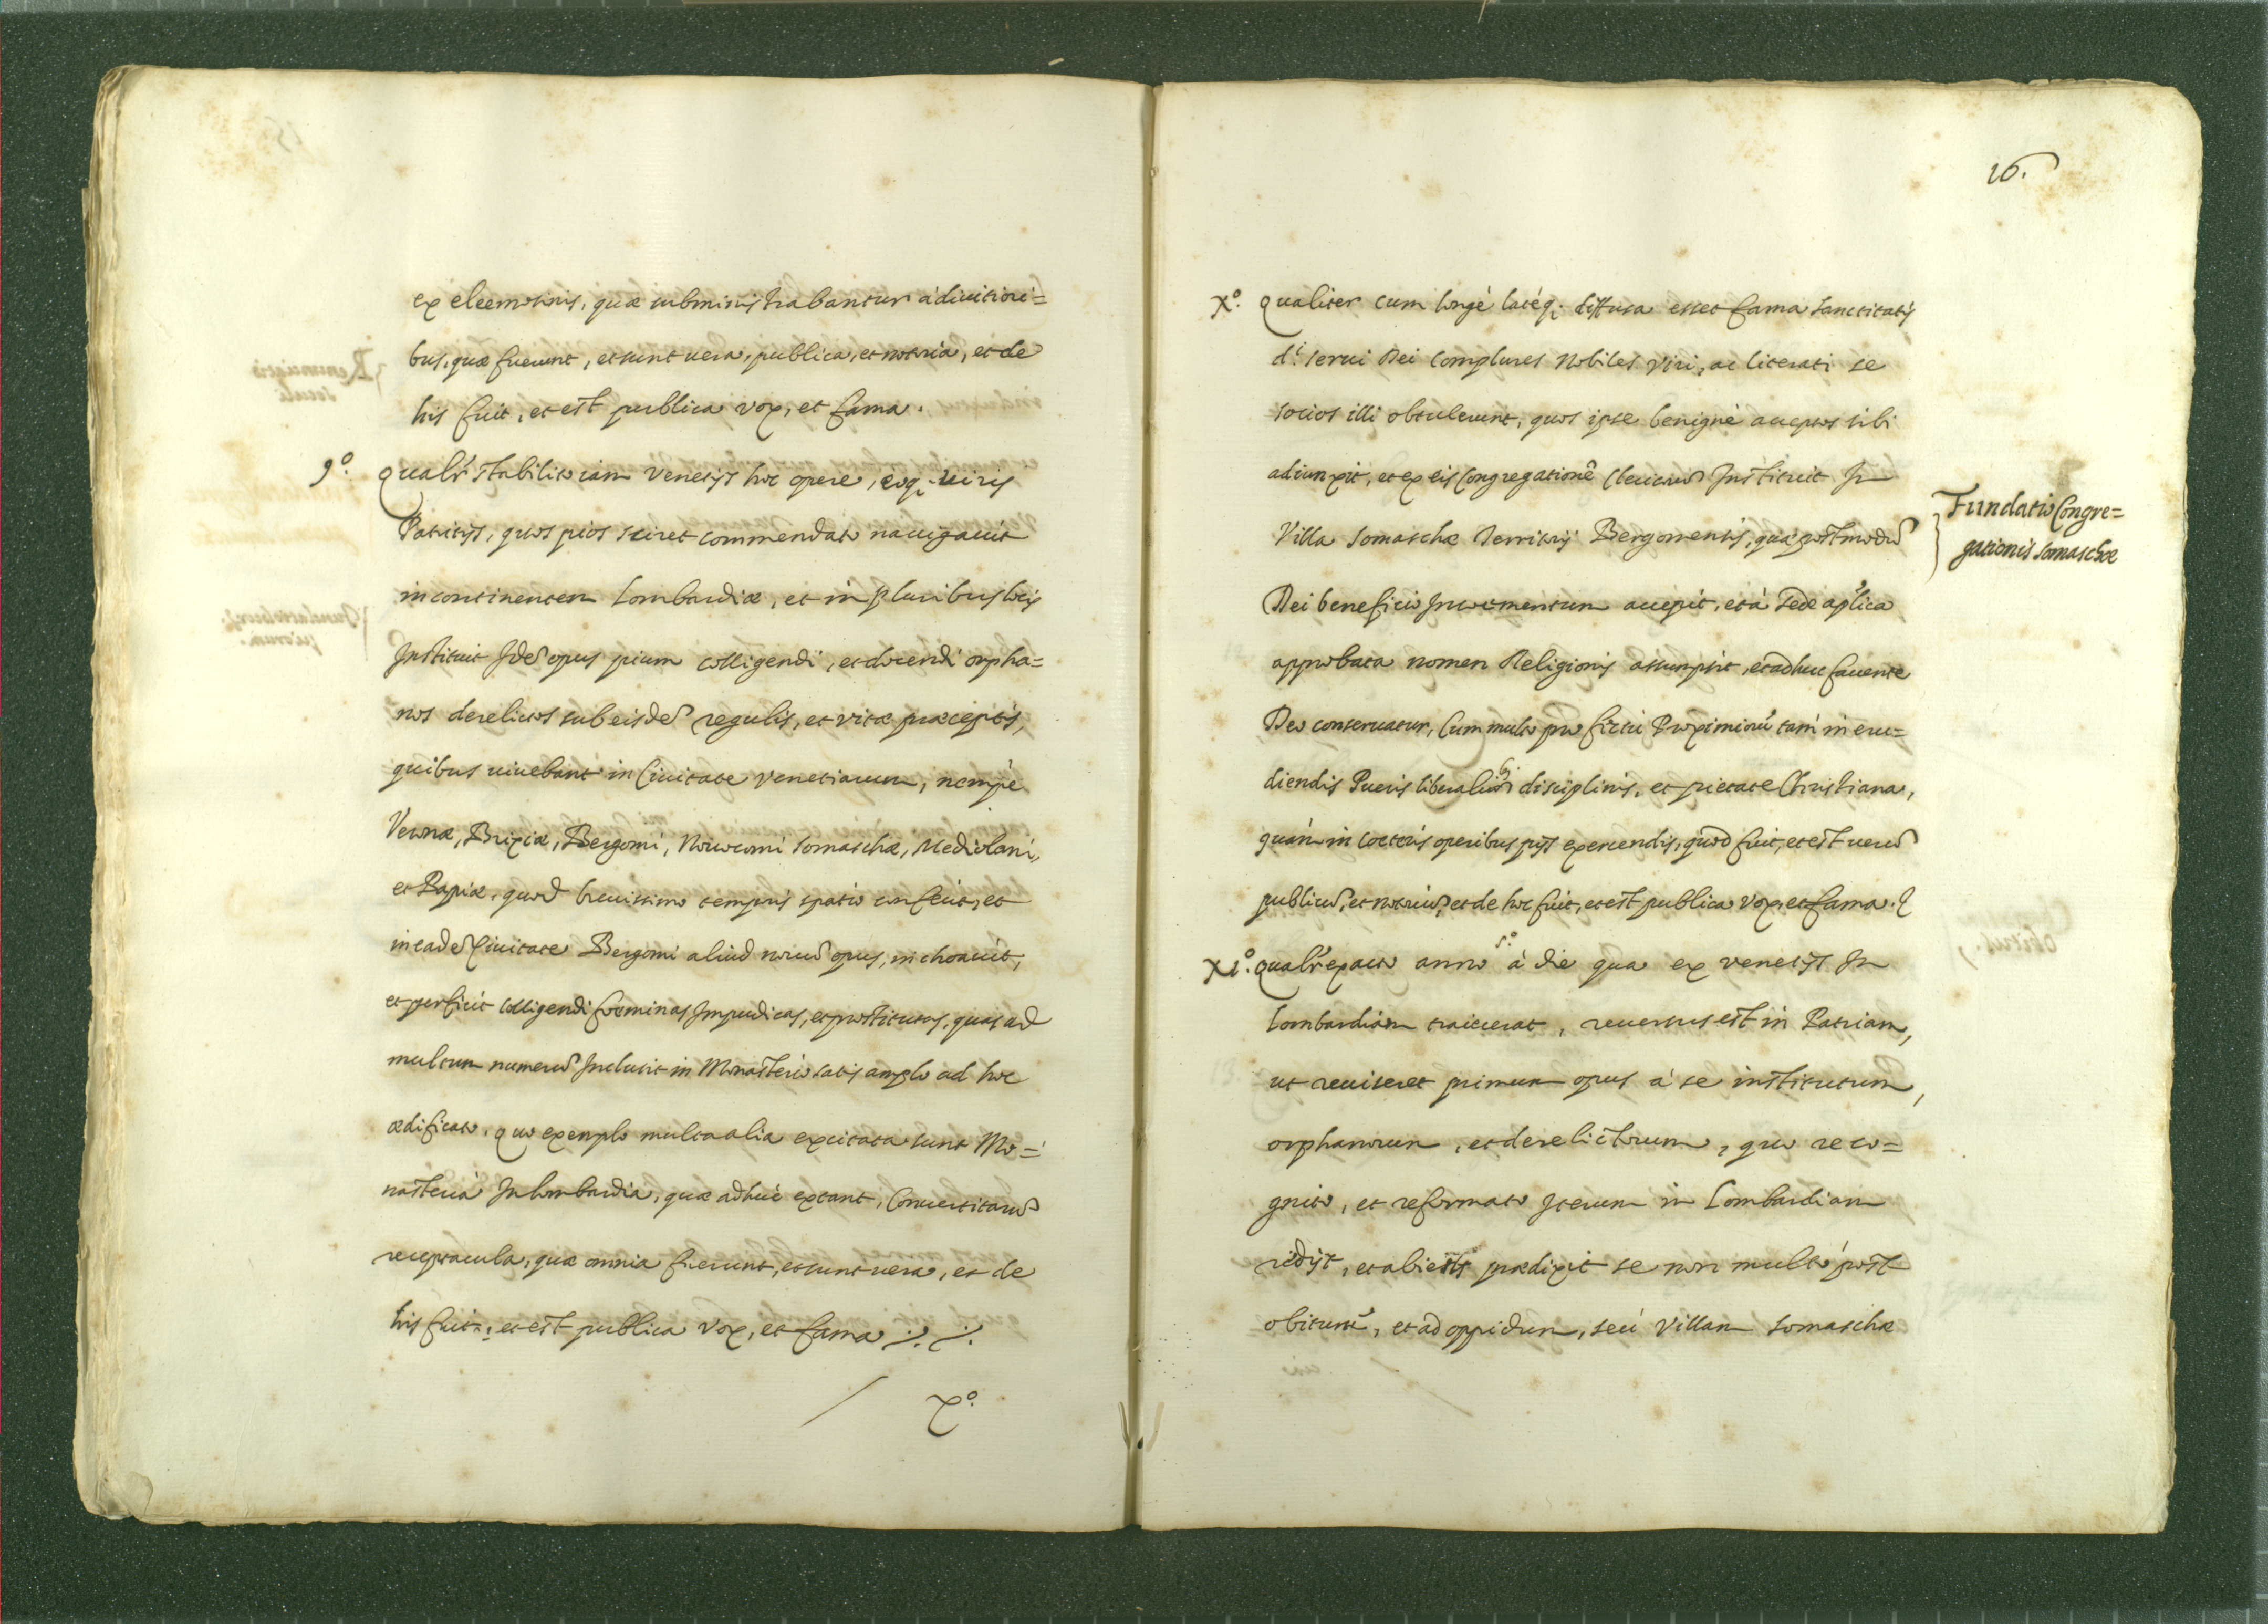 ex eleemosinis, quæ subministrabantur à ditiori=
bus, quæ fuerunt, et sunt uera, publica, et notoria, et de
his fuit, et est publica vox, et fama.
9º. Qualr stabilito iam Venetijs hoc opere, eoq; uiris
Patritijs, quos pios sciret commendato nauigauit
in continentem Lombardiæ, et in pluribus locis
Instituit Idẽ opus pium colligendi, et docendi orpha=
nos derelictos sub eisdẽ regulis, et vitæ præceptis,
quibus uiuebant in Ciuitate Venetiarum, nempè
Veronæ, Brixiæ, Bergomi, Nouocomi Somaschæ, Mediolani,
et Papiæ, quod breuissimo temporis spatio confecit, et
in eadẽ Ciuitate Bergomi aliud nouũ opus, inchoauit,
et perficit colligendi fœminas Impudicas, et prostitutas, quas ad
multum numerũ Inclusit in Monasterio satis amplo ad hoc
ædificato. quo exemplo multa alia excitata sunt Mo=
nasteria In Lombardia, quæ adhuc extant, Conuertitarũ
receptacula, quæ omnia fuerunt, et sunt uera, et de
his fuit, et est publica vox, et fama
Xº.
16.
Xº. Qualiter cum longè latèq; diffusa esset fama sanctitatis
di. serui Dei complures Nobiles Viri, ac literati se
socios illi obtulerunt, quos ipse benignè acceptos sibi
adiunxit, et ex eis Congregationẽ Clericorũ Instituit In
Villa Somaschæ Territorij Bergomensis, quæ postmodũ
Fundatio Congre=
gationis Somaschæ
Dei beneficio Incrementum accepit, et à sede aplica
approbata nomen Religionis assumpsit, et adhuc fauente
Deo conseruatur, Cum multo profectu Proximiorũ tam in eru=
diendis Pueris liberalibus disciplinis, et pietate Christiana,
quàm in cœteris operibus pijs exercendis, quod fuit, et est uerũ
publicũ, et notoriũ, et de hoc fuit, et est publica vox, et fama.
XIº. Qualr exacto anno sº. à die qua ex Venetijs In
Lombardiam traiecerat, reuersus est in Patriam,
ut reuiseret primum opus à se institutum,
orphanorum, et derelictorum, quo reco=
gnito, et reformato Iterum in Lombardiam
redijt, et abiens prædixit se non multò post
obiturũ, et ad oppidum, seù Villam Somaschæ